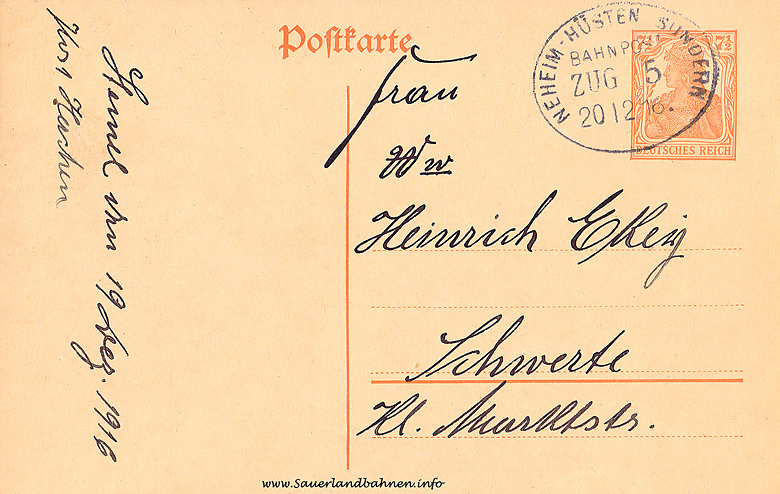 Postkarte
NEHEIM-HÜSTEN SUNDERN
BAHNPOST
ZUG 5
20 12 16.
7½ 7½
DEUTSCHES REICH
Frau
Ww
Heinrich
Schwerte
Kl. Marktstr.
Stemel den 19 Dez. 1916
Post Hachen
www.Sauerlandbahnen.info